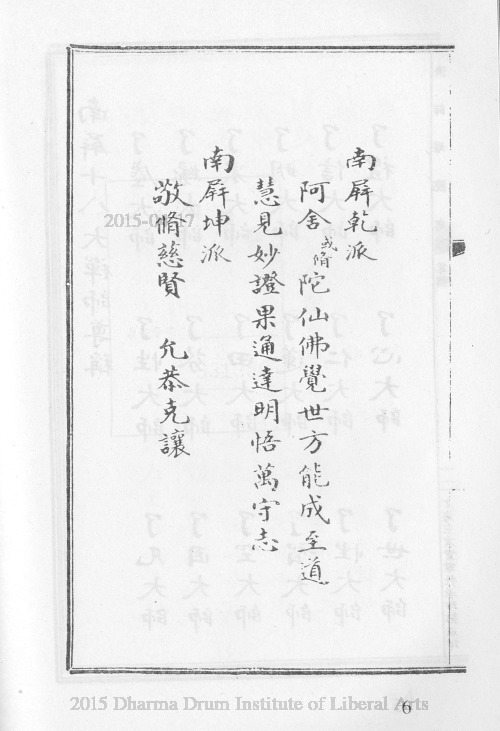 南屏乾派
阿舍或脩陀仙佛覺世方能成至道
慧見妙證果通達明悟萬守志
南屏坤派
敬脩慈賢 允恭克讓
2015-0 17
2015 Dharma Drum Institute of Liberal Arts
6